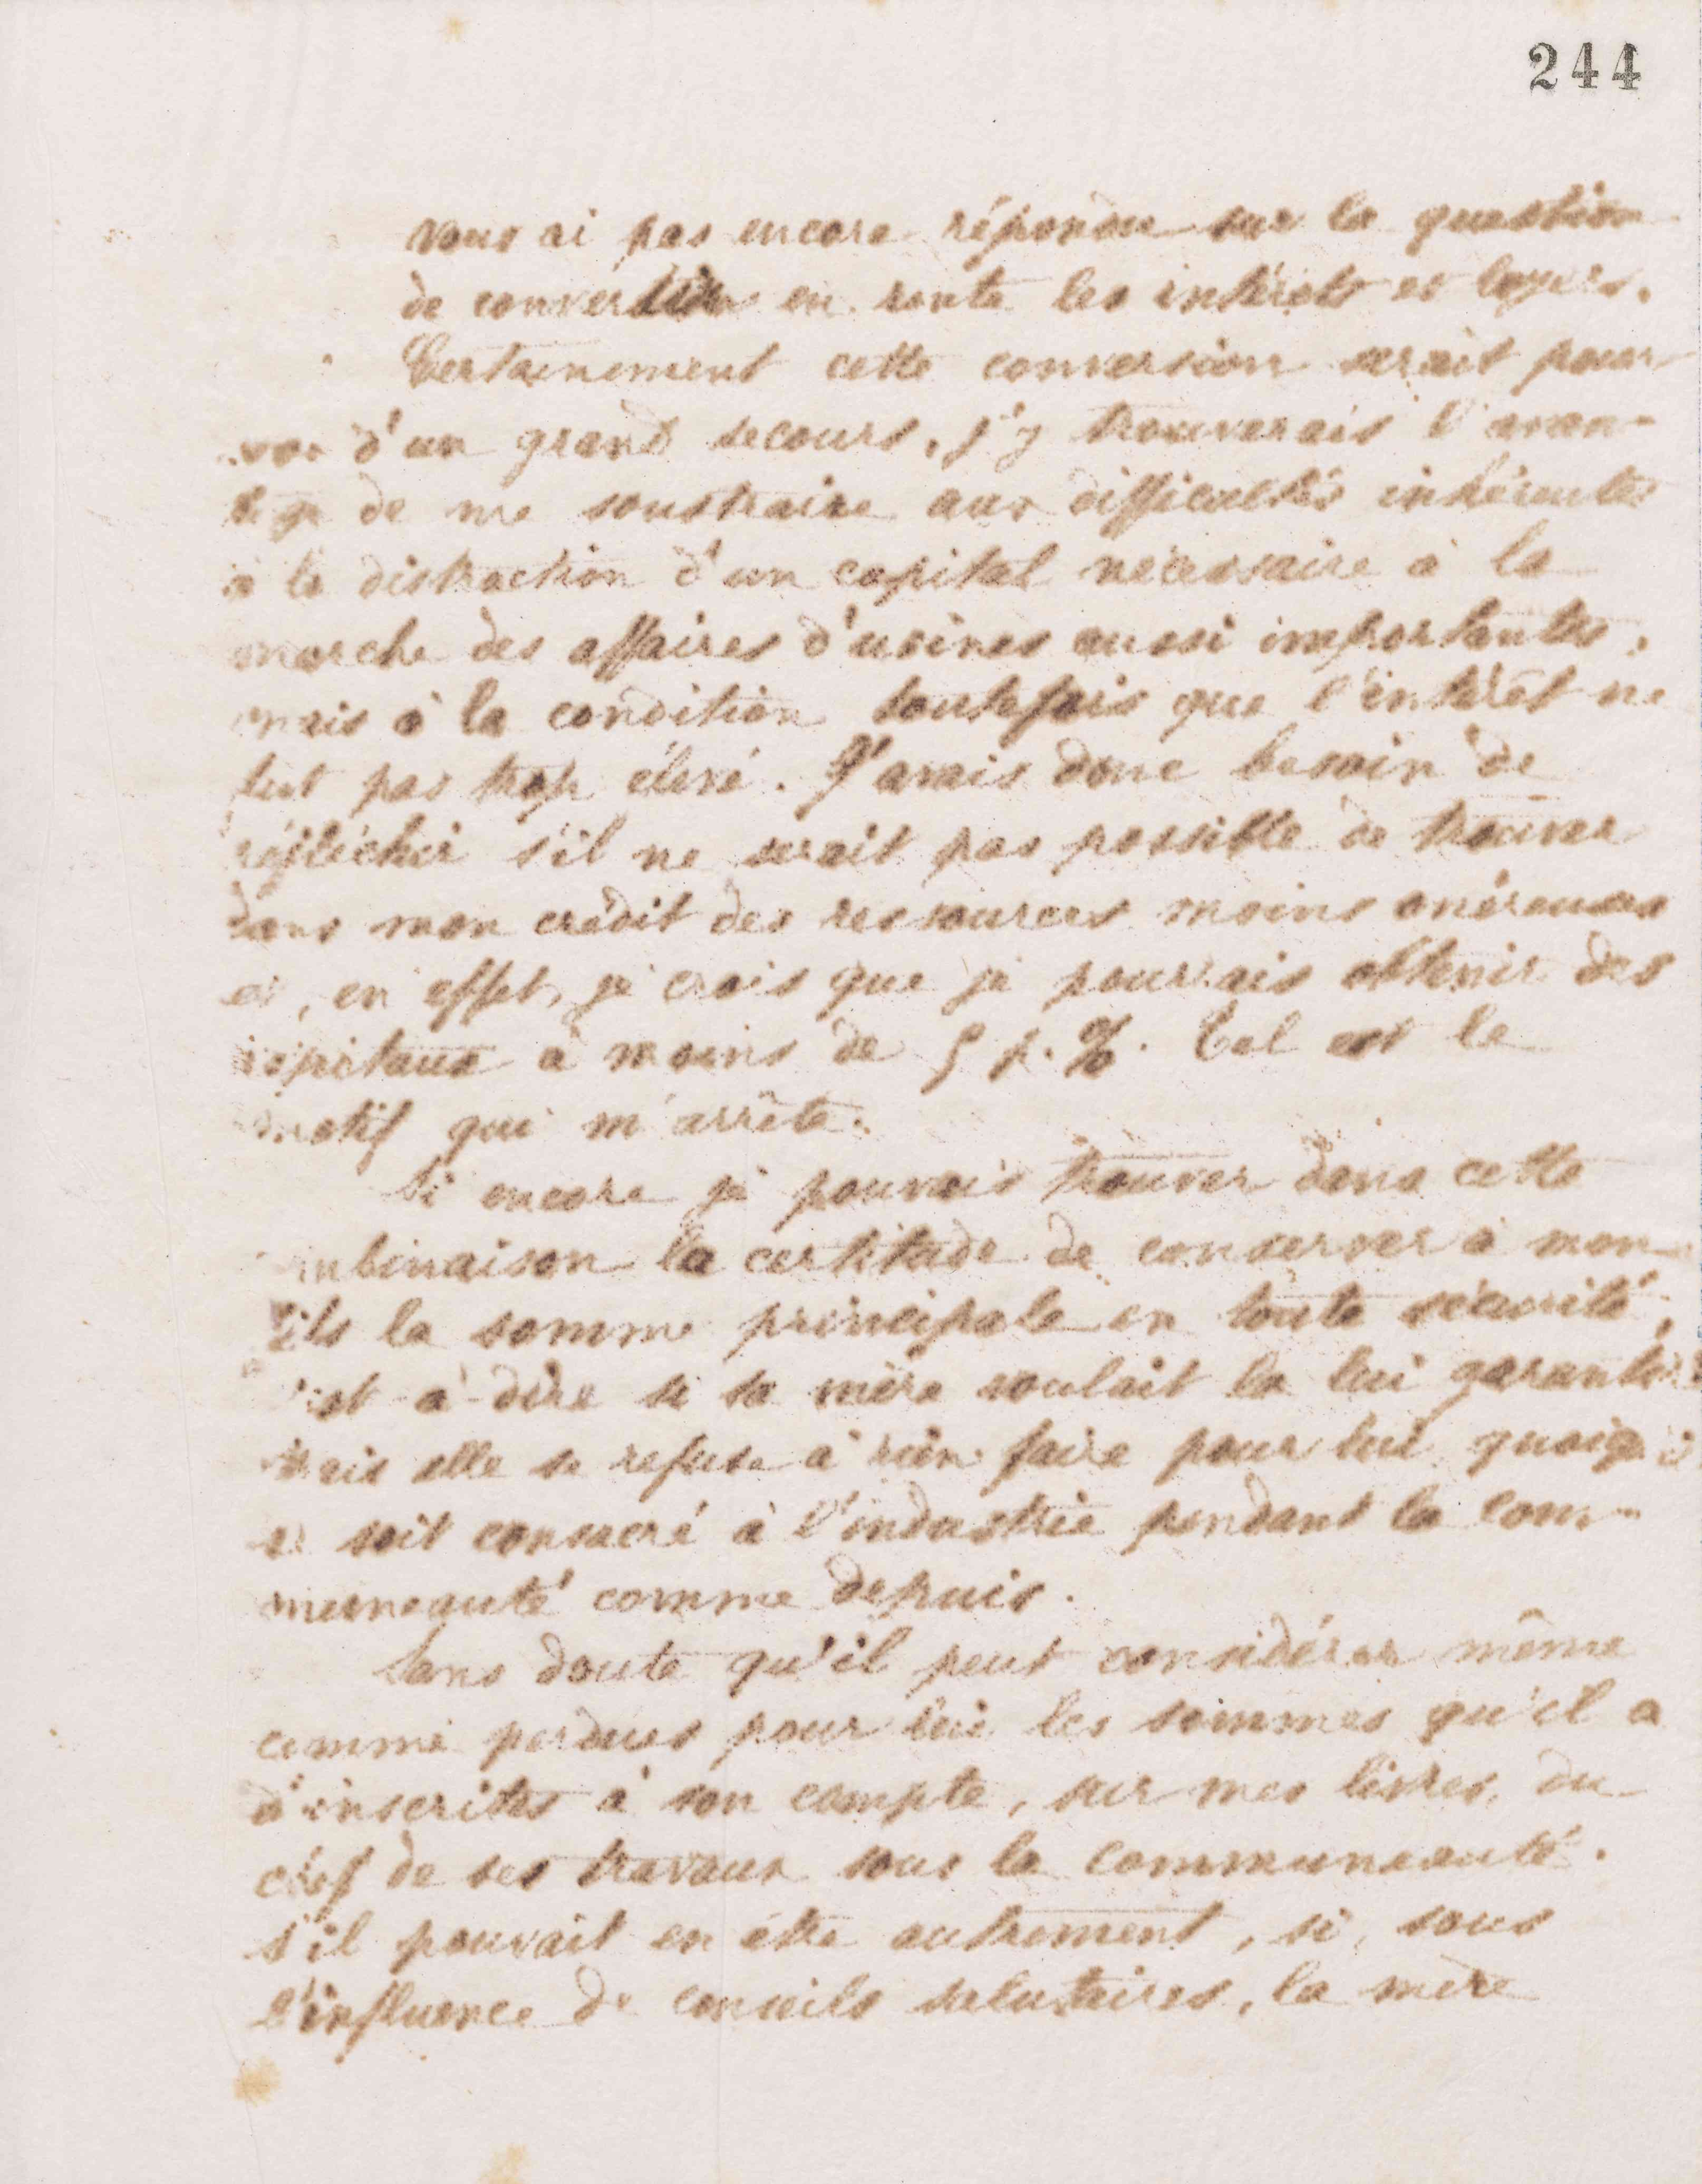 244
vous ai pas encore répondu sur la question
de conversion en rente les intérêts et loyers.
Certainement cette conversion serait pour
moi d'un grand secours, j'y trouverais l'avan-
tage de me soustraire aux difficultés inhérentes
à la distraction d'un capital nécessaire à la
marche des affaires d'usines aussi importantes,
mais à la condition toutefois que l'intérêt ne
fut pas trop élevé. J'avais donc besoin de
réfléchir s'il ne serait pas possible de trouver
dans mon crédit des ressources moins onéreuses
et, en effet, je crois que je pourrais obtenir des
capitaux à moins de 5 p. %. Tel est le
motif qui m'arrête.
Si encore je pouvais trouver dans cette
combinaison la certitude de conserver à mon
fils la somme principale en toute sécurité,
c'est à-dire si sa mère voulait la lui garantir
mais elle se refuse à rien faire pour lui quoiqu'il
se soit consacré à l'industrie pendant la com-
munauté comme depuis.
Sans doute qu'il peut considérer même
comme perdues pour lui les sommes qu'il a
d'inscrites à son compte, sur mes livres, du
chef de ses travaux sous la communauté.
S'il pouvait en être autrement, si, sous
l'influence de conseils salutaires, la mère